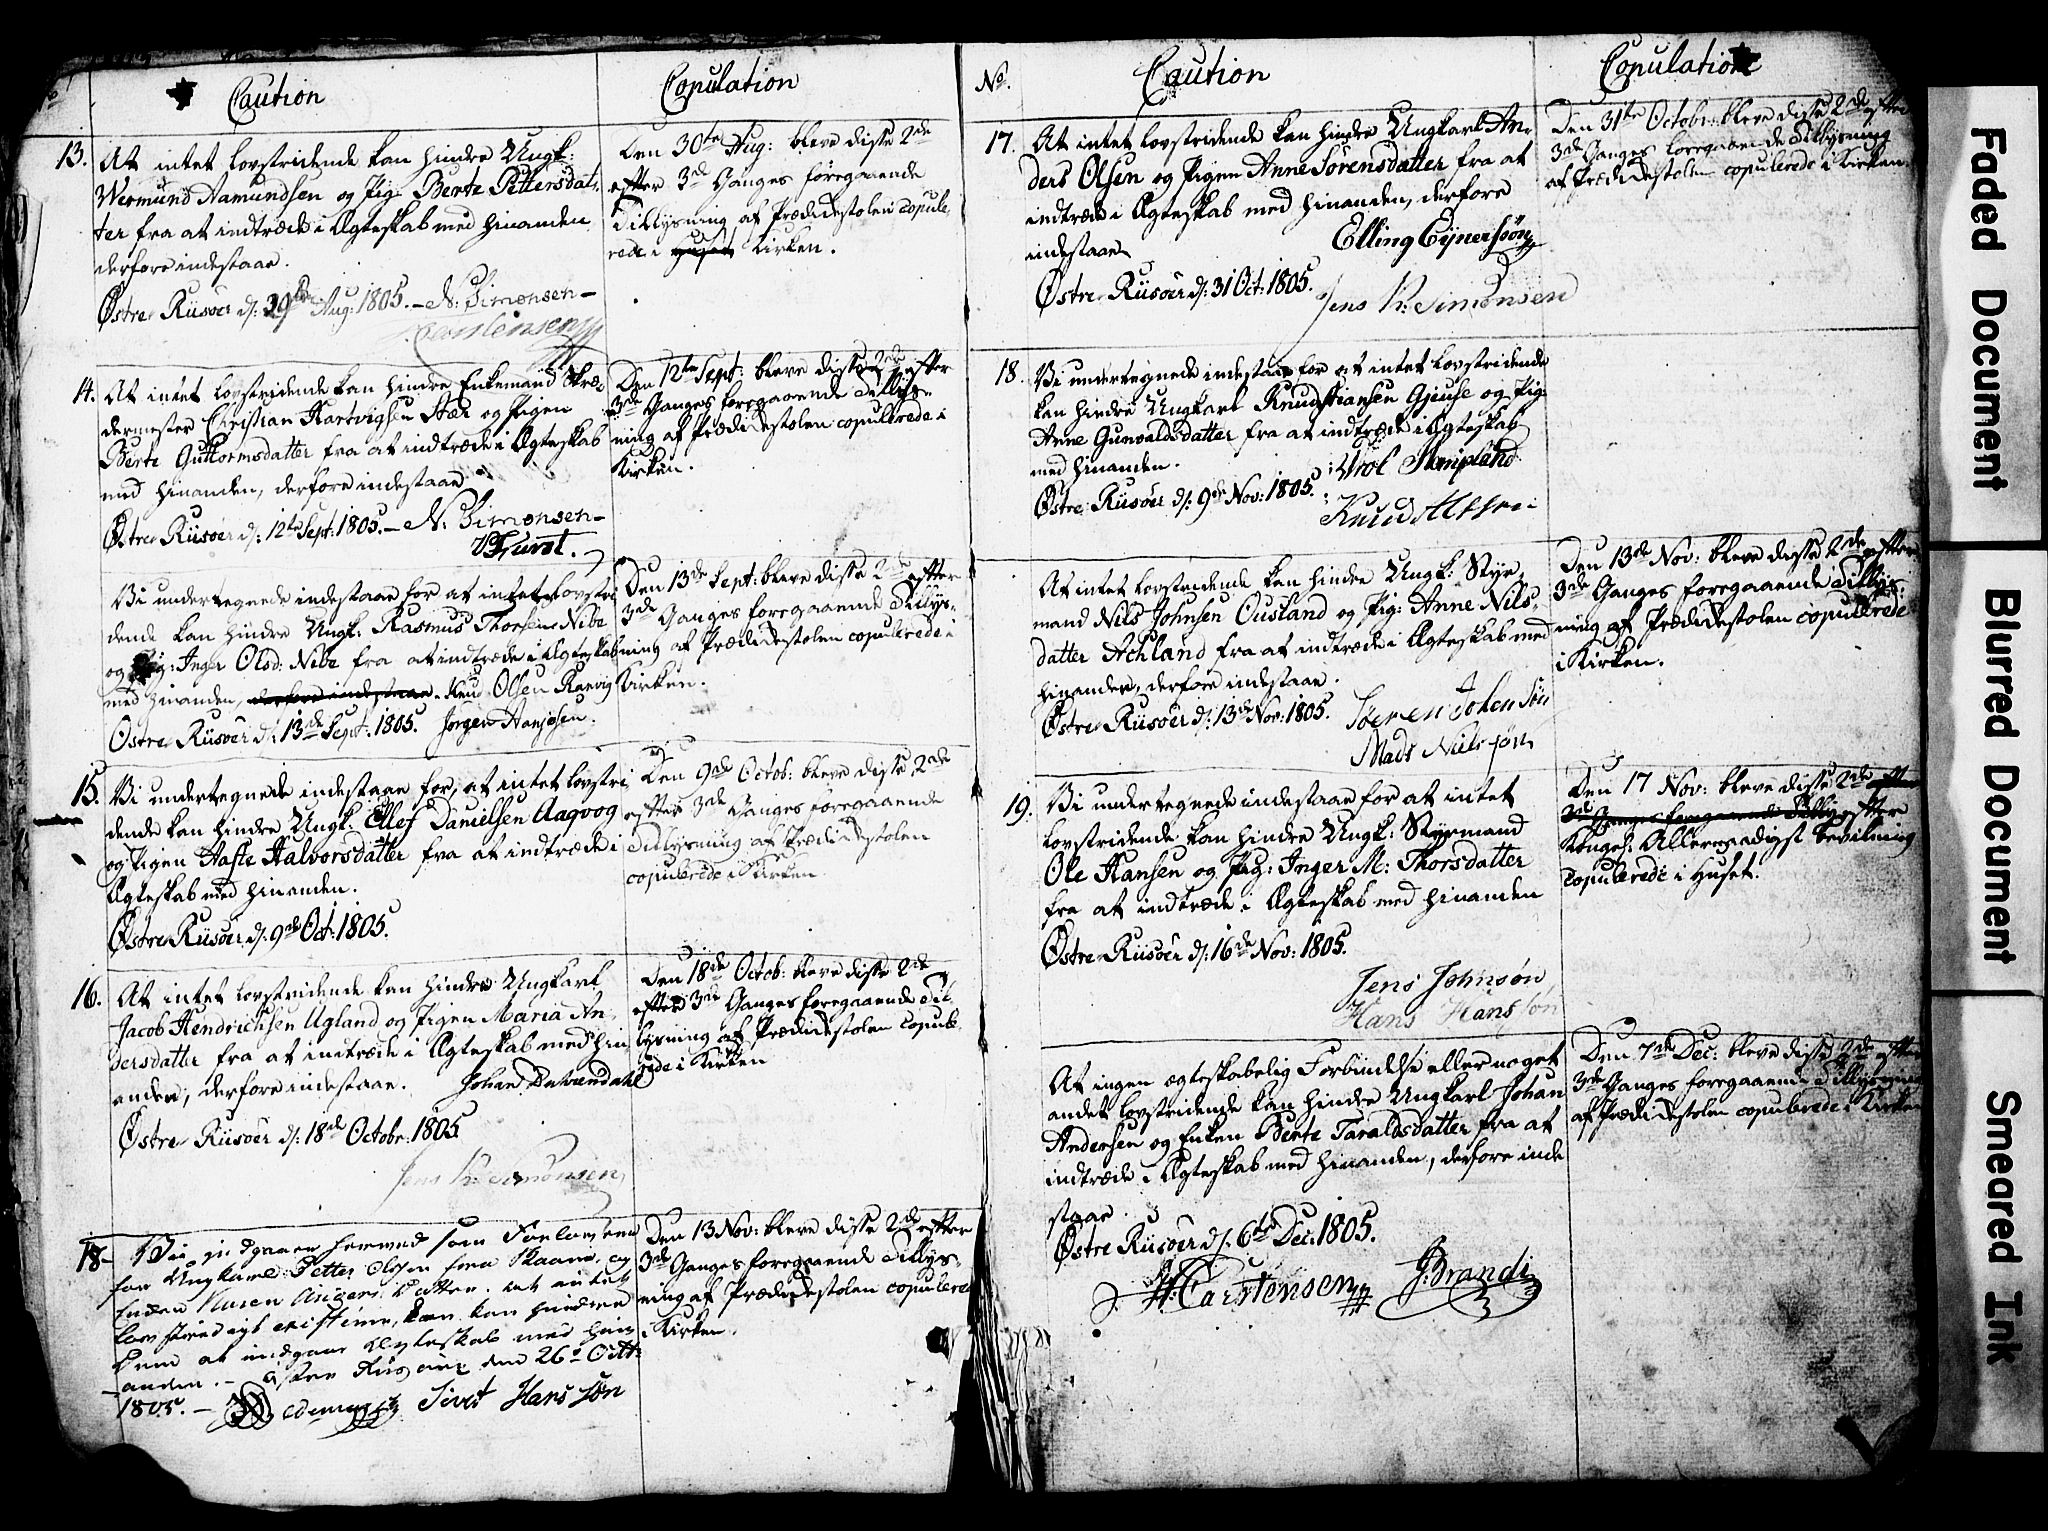 Caution
Copulation
13. At intet lovstridende kan hindre Ungk:
Wermund Aamundsen og Pig: Berte Pettersdat-
ter fra at indtræde i Ægteskab med hinanden
derfore indestaae.
Østre Riisøer d: 29de Aug: 1805. – N: Simonsen –
Den 30te Aug: bleve disse 2de
efter 3de Ganges foregaaende
Tillysning af Prædikestolen copule
rede i Kirken.
14. At intet lovstridende kan hindre Enkemand Skræ-
dermester Christian Hartvigsen Aær og Pigen
Berte Guttormsdatter fra at indtræde i Ægteskab
med hinanden, derfore indestaae
Østre Riisøer d: 12te Sept: 1805. – N: Simonsen –
Den 12te Sept: bleve disse 2de efter
3de Ganges foregaaende Tillys-
ning af Prædikestolen copulerede i
Kirken.
Vi undertegnede indestaae for at intet lovstri
dende kan hindre Ungk: Rasmus Thorsen Nibe
og Pig: Inger Olsd: Nibe fra at indtræde i Ægteskab
med hinanden, derfore indestaae. Knud Olsen Ranvig
Østre Riisøer d: 13de Sept: 1805. Jørgen Aanjøsen.
Den 13de Sept: bleve disse 2de efter
3de Ganges foregaaende Tillys-
ning af Prædikestolen copulerede i
Kirken.
15. Vi undertegnede indestaae for, at intet lovstri
dende kan hindre Ungk: Ellef Danielsen Aaqvog
og Pigen Aaste Halvorsdatter fra at indtræde i
Ægteskab med hinanden.
Østre Riisøer d: 9de Oct: 1805.
Den 9de Octob: bleve disse 2de
efter 3de Ganges foregaaende
Tillysning af Prædikestolen
copulerede i Kirken
16. At intet lovstridende kan hindre Ungkarl
Jacob Hendrichsen Ugland og Pigen Maria An-
dersdatter fra at indtræde i Ægteskab med hin
anden, derfore indestaae. Johan Dahlendahl
Østre Riisøer d: 18de Octobr: 1805.
Jens Kr: Simonsen
Den 18de Octob: bleve disse 2de
efter 3de Ganges foregaaende Til-
lysning af Prædikestolen copule
rede i Kirken
18- Vii herved som Forlovere
for Ungkarl Petter Olsen fra Skaane, og
Enken Datter, at intet
kan hindre
dem at indgaae Ægteskab med hin
anden. – Øster Riisøer den 26de Octb:
1805. – Sivert Hans søn
Den 13 Nov: bleve disse 2de efter
3de Ganges foregaaende Tillys-
ning af Prædikestolen copulerede
i Kirken.
No. Caution
Copulation
17. At intet lovstridende kan hindre Ungkarl An-
ders Olsen og Pigen Anne Sørensdatter fra at
indtræde i Ægteskab med hinanden, derfore
indestaae Elling Eijnersøn
Østre Riisøer d: 31 Oct: 1805.
Jens Kr: Simonsen
Den 31te Octobr: bleve disse 2de efter
3de Ganges foregaaende Tillysning
af Prædikestolen copulerede i Kirken.
18. Vi undertegnede indestaae for at intet lovstridende
kan hindre Ungkarl Knud Stiansen Gjeuse og Pig:
Anne Gunvaldsdatter fra at indtræde i Ægteskab
med hinanden.
Østre Riisøer d: 9de Nov: 1805.
At intet lovstridende kan hindre Ungk: Styr-
mand Nils Johnsen Ousland og Pig: Anne Nils-
datter Achland fra at indtræde i Ægteskab med
hinanden, derfore indestaae.
Østre Riisøer d: 13de Nov: 1805. Søeren Johen Søn
Mads Niels søn
Den 13de Nov: bleve disse 2de efter
3de Ganges foregaaende Tillys-
ning af Prædikestolen copulerede
i Kirken.
19. Vi undertegnede indestaae for at intet
lovstridende kan hindre Ungk: Styrmand
Ole Hansen og Pig: Inger M: Thorsdatter
fra at indtræde i Ægteskab med hinanden
Østre Riisøer d: 16de Nov: 1805.
Jens Johnsøn
Hans Hans søn
Den 17 Nov: bleve disse 2de efter
3de Ganges foregaaende Tillys efter
Konges: Allernaadigst bevilning
copulerede i Huset.
At ingen ægteskabelig Forbindelse eller noget
andet lovstridende kan hindre Ungkarl Johan
Andersen og Enken Berte Taraldsdatter fra at
indtræde i Ægteskab med hinanden, derfore inde
staae.
Østre Riisøer d: 6te Dec: 1805.
H: Carstensen J: Brandt
Den 7de Dec: bleve disse 2de efter
3de Ganges foregaaende Tillysning
af Prædikestolen copulerede i Kirken
Faded Document
Blurred Document
Smeared Ink